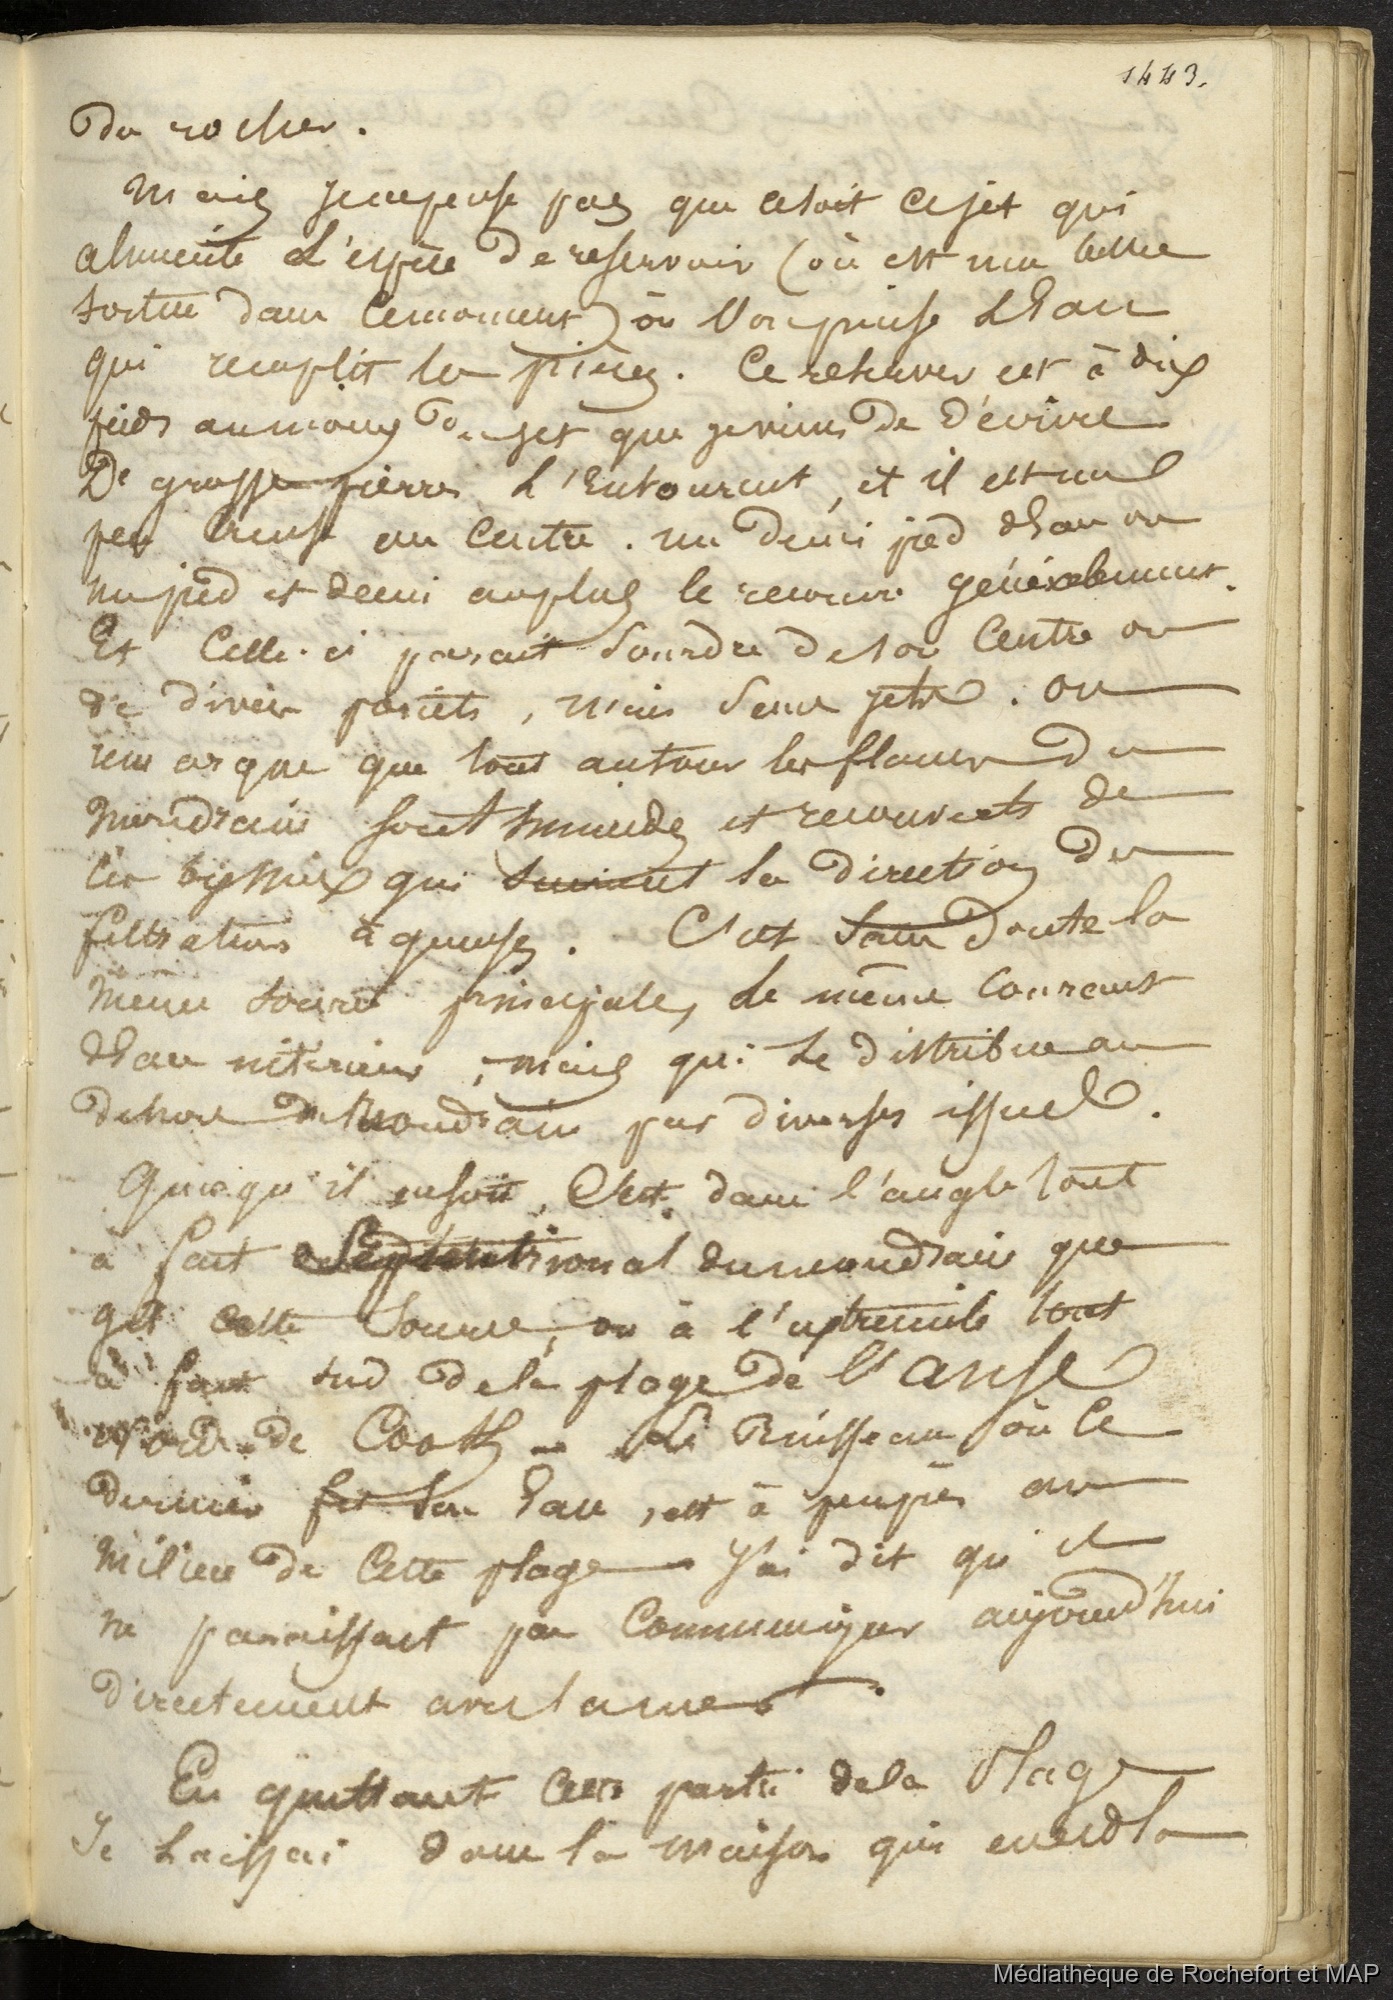 1443.
du rocher.
Mais je ne pense pas que ce soit ce jet qui
alimente L'espèce de reservoir (où est une
tortue dans ce moment) où l'on puise L'Eau
qui remplit les pièces. Ce reservoir est à dix
pieds au moins du jet que je viens de d'écrire
De grosses pierres L'Entourent, et il est un
peu creusé au Centre. un demi pied d'Eau ou
un pied et demi au plus le recouvre généralement.
Et Celle-ci parait Sourdre de son Centre ou
de divers points, mais sans jets. on
remarque que tout autour les flancs du
mondrain sont humides et recouverts de
qui suivent la direction des
filtrations aqueuses. C'est sans doute la
même source principale, le même courant
d'Eau intérieur, mais qui se distribue au
dehors du mondrain par diverses issues.
Quoiqu'il en soit, C'est dans l'angle tout
à fait Septentrional du mondrain que
git cette source, ou à l'extremité tout
à fait sud de la plage de l'anse
nord de Cook. Le Ruisseau où ce
dernier fit son Eau, est à peu près au
milieu de Cette plage J'ai dit qu'il
ne paraissait pas Communiquer aujourd'hui
directement avec la mer.
En quittant cette partie de la Plage
Je Laissai dans la maison qui